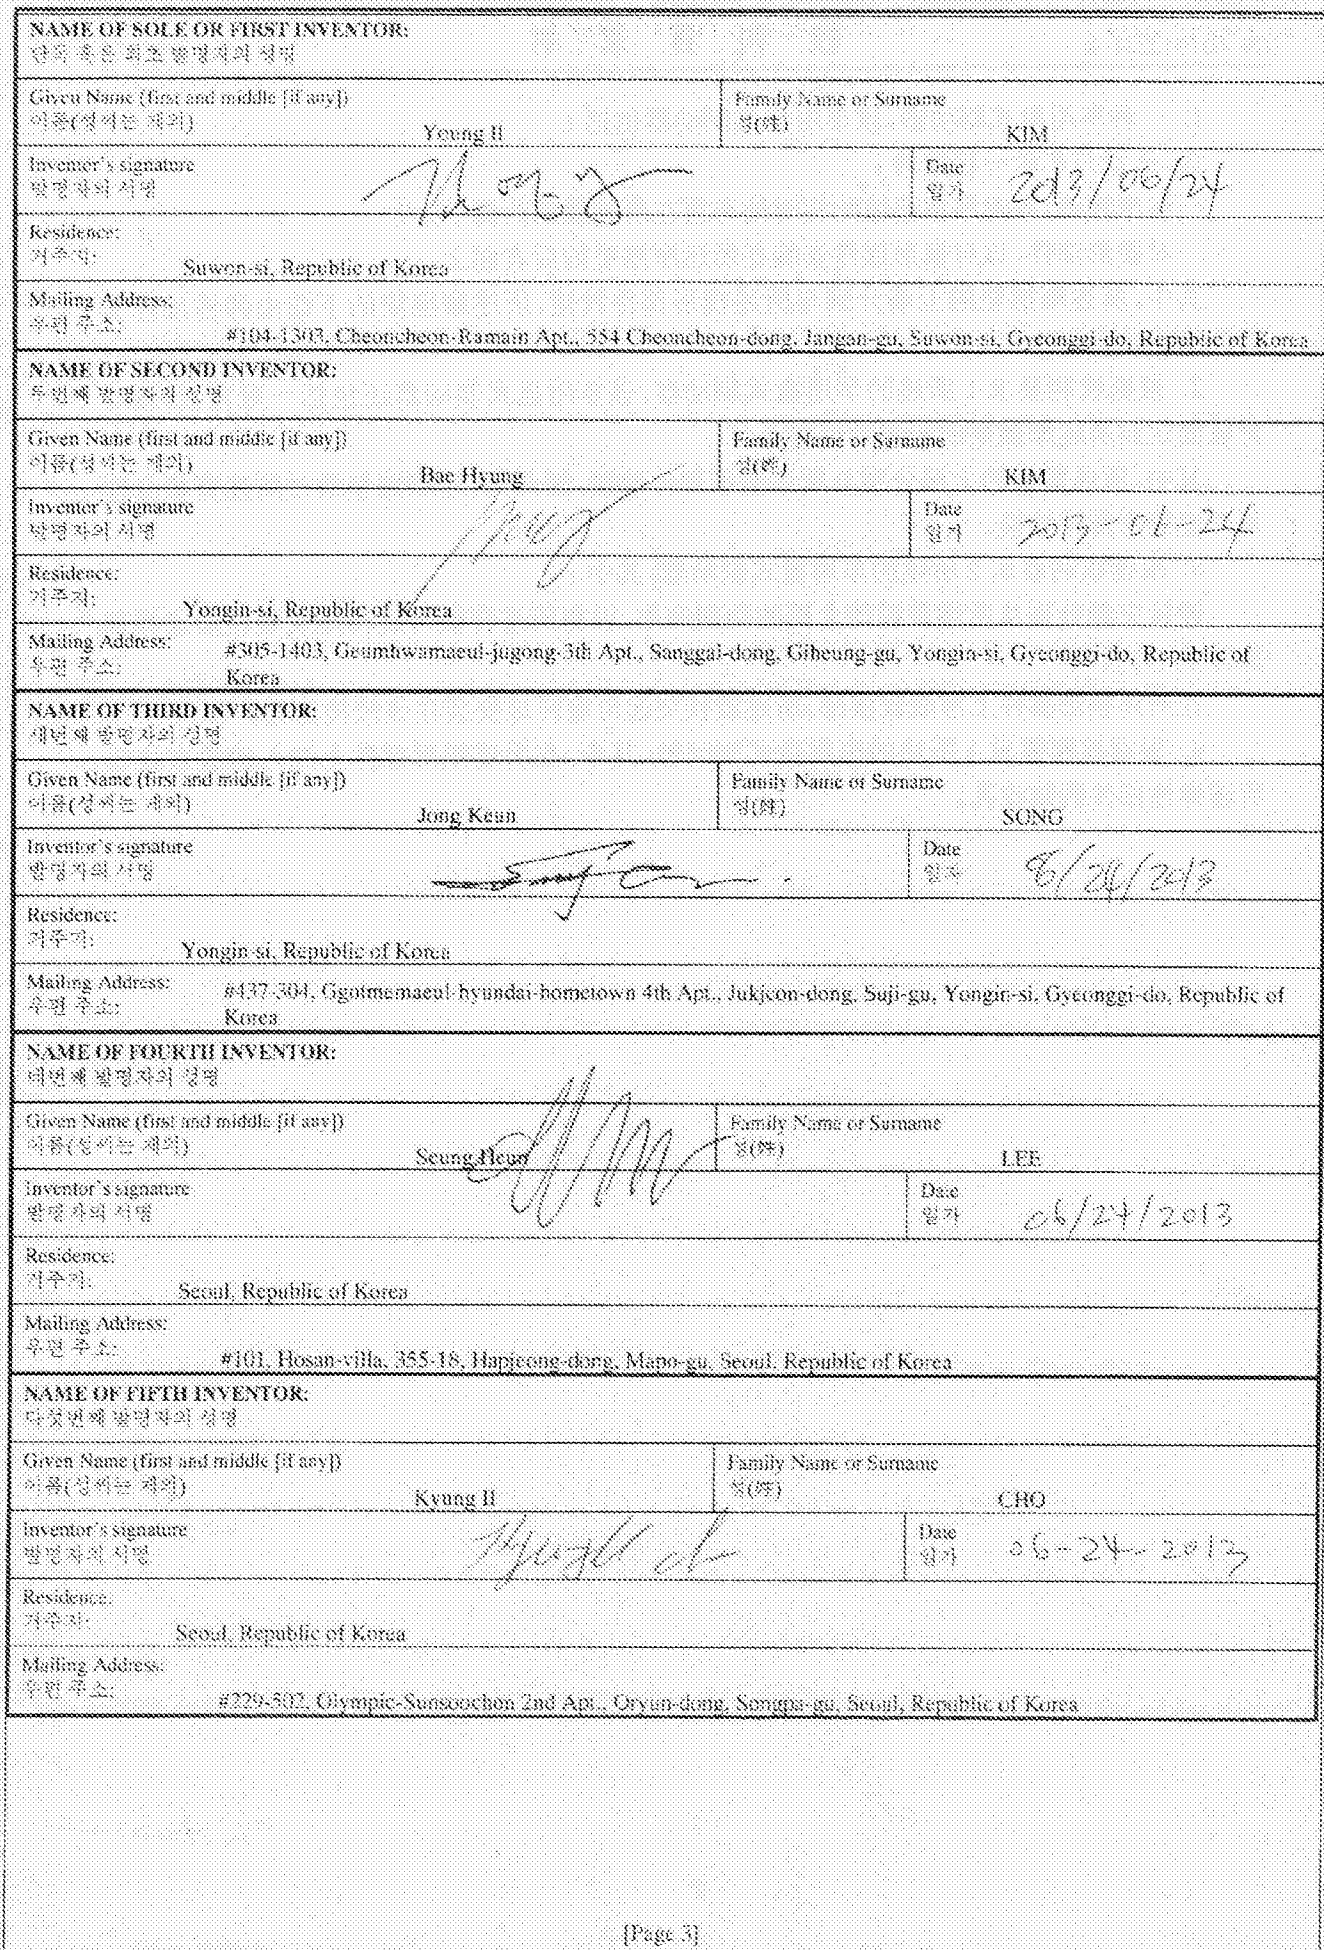 NAME OF SOLE OR FIRST INVENTOR:
단독 혹은 최초 발명자의 성명
Given Name (first and middle [if any])
이름(성씨는 제외)
Young Il
Family Name or Surname
성(姓)
KIM
Inventor's signature
발명자의 서명
Date
일자
2013/06/24
Residence:
거주지:
Suwon-si, Republic of Korea
Mailing Address:
우편 주소:
#104-1303, Cheoncheon-Ramain Apt., 554 Cheoncheon-dong, Jangan-gu, Suwon-si, Gyeonggi-do, Republic of Korea
NAME OF SECOND INVENTOR:
두번째 발명자의 성명
Given Name (first and middle [if any])
이름(성씨는 제외)
Bae Hyung
Family Name or Surname
성(姓)
KIM
Inventor's signature
발명자의 서명
Date
일자
2013-06-24
Residence:
거주지:
Yongin-si, Republic of Korea
Mailing Address:
우편 주소:
#305-1403, Geumhwamaeul-jugong-3th Apt., Sanggal-dong, Giheung-gu, Yongin-si, Gyeonggi-do, Republic of
Korea
NAME OF THIRD INVENTOR:
세번째 발명자의 성명
Given Name (first and middle [if any])
이름(성씨는 제외)
Jong Keun
Family Name or Surname
성(姓)
SONG
Inventor's signature
발명자의 서명
Date
일자
Residence:
거주지:
Yongin-si, Republic of Korea
Mailing Address:
우편 주소:
#437-304, Ggotmemaeul-hyundai-hometown 4th Apt., Jukjeon-dong, Suji-gu, Yongin-si, Gyeonggi-do, Republic of
Korea
NAME OF FOURTH INVENTOR:
네번째 발명자의 성명
Given Name (first and middle [if any])
이름(성씨는 제외)
Seung Heun
Family Name or Surname
성(姓)
LEE
Inventor's signature
발명자의 서명
Date
일자
06/24/2013
Residence:
거주지:
Seoul, Republic of Korea
Mailing Address:
우편 주소:
#101, Hosan-villa, 355-18, Hapjeong-dong, Mapo-gu, Seoul, Republic of Korea
NAME OF FIFTH INVENTOR:
다섯번째 발명자의 성명
Given Name (first and middle [if any])
이름(성씨는 제외)
Kyung Il
Family Name or Surname
성(姓)
CHO
Inventor's signature
발명자의 서명
Date
일자
06-24-2013
Residence:
거주지:
Seoul, Republic of Korea
Mailing Address:
우편 주소:
#229-502, Olympic-Sunsoochon 2nd Apt., Oryun-dong, Songpa-gu, Seoul, Republic of Korea
[Page 3]